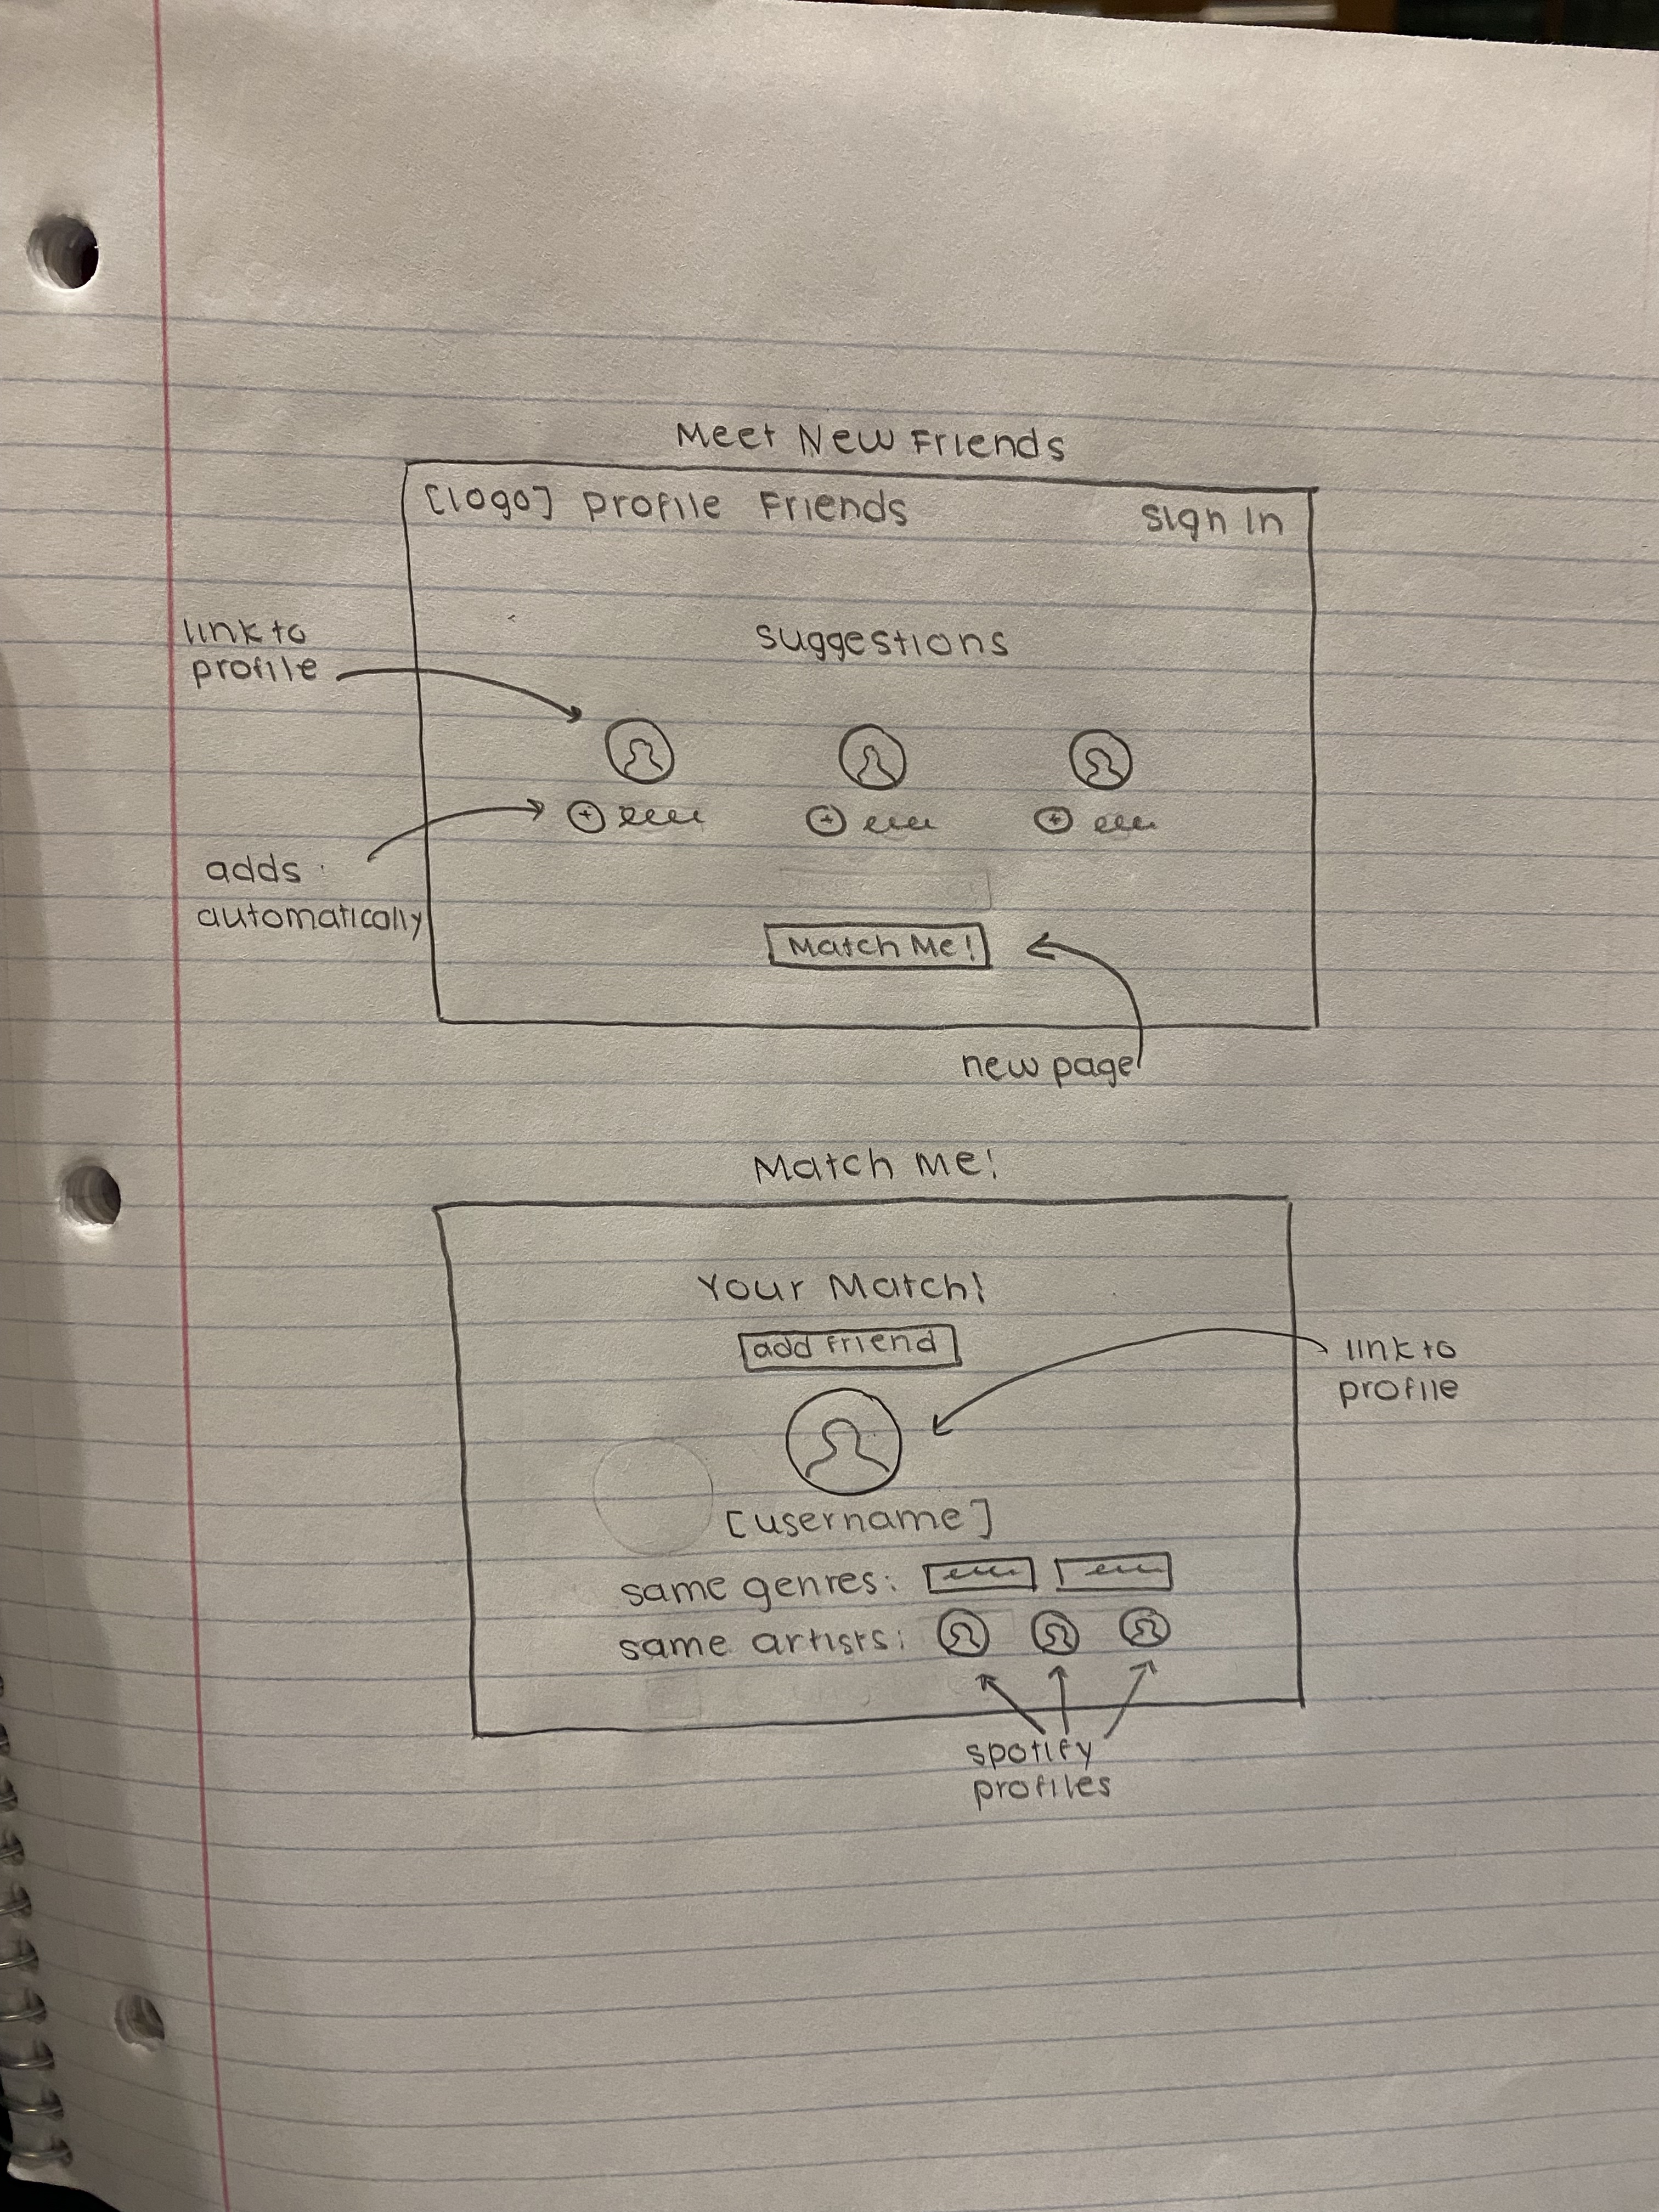 Meet New Friends
[logo] Profile Friends Sign In
link to
profile
suggestions
adds
automatically
Match Me!
new page
Match Me!
Your Match!
add friend
link to
profile
[username]
same genres:
same artists:
spotify
profiles